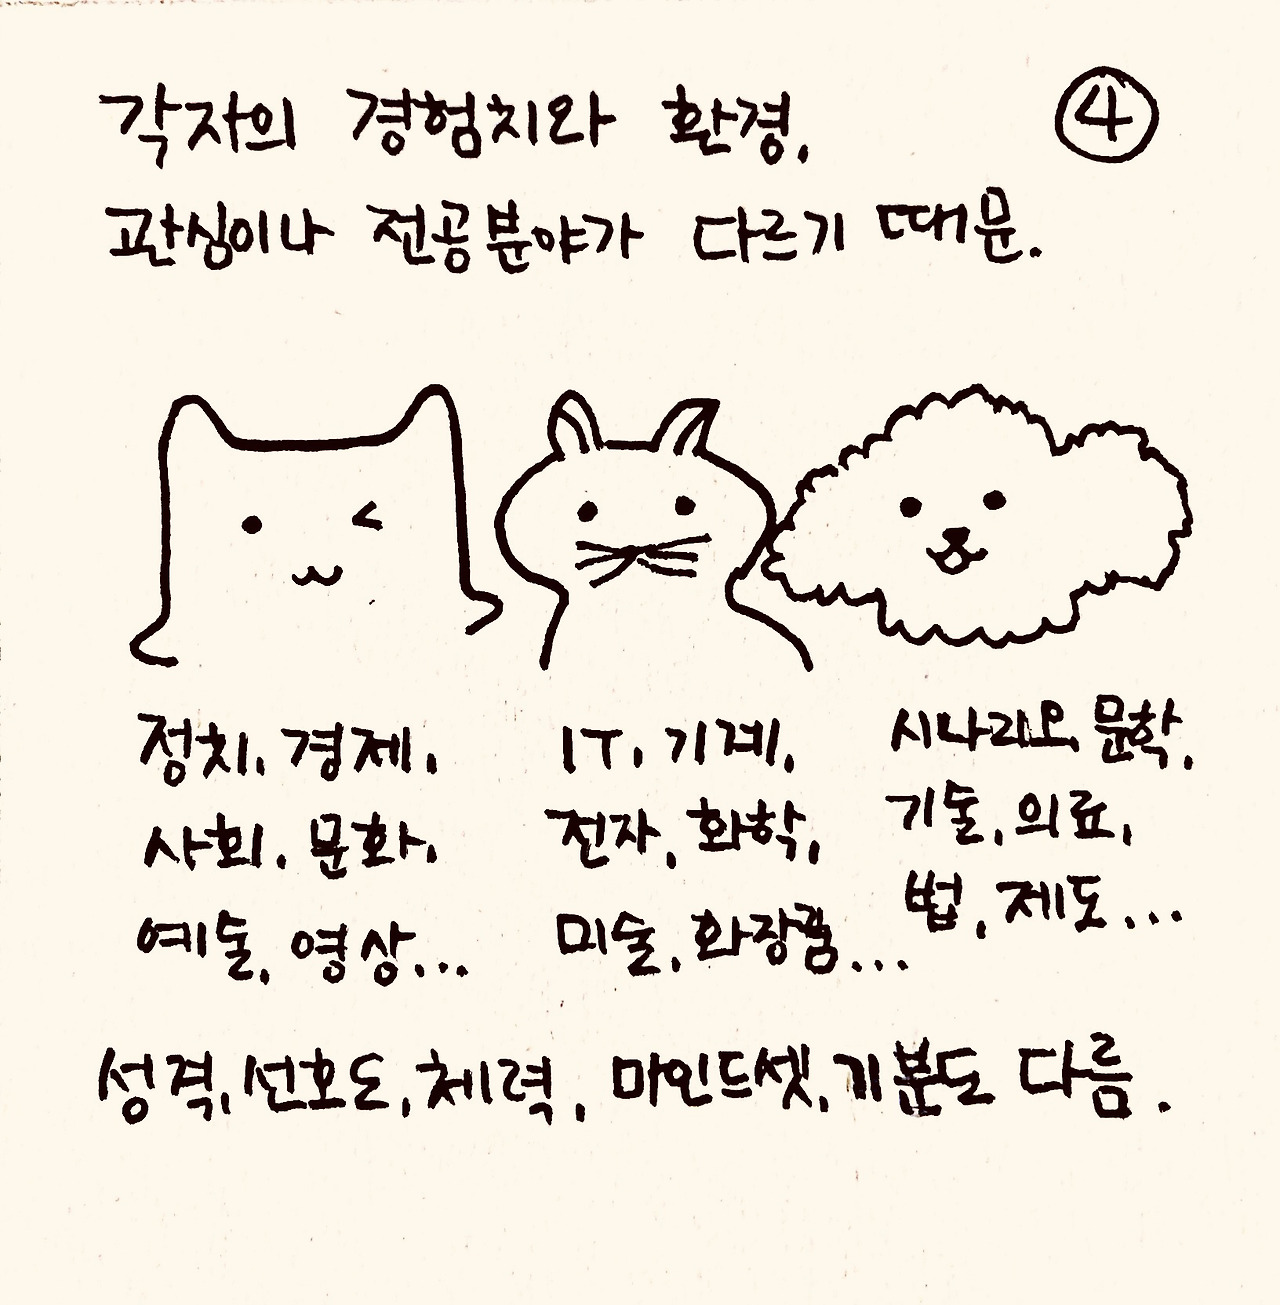 각자의 경험치와 환경,
④
관심이나 전공분야가 다르기 때문.
정치, 경제,
사회, 문화,
예술, 영상...
IT, 기계,
전자, 화학,
미술, 화장품...
시나리오, 문학,
기술, 의료,
법, 제도...
성격, 선호도, 체력, 마인드셋, 기분도 다름.